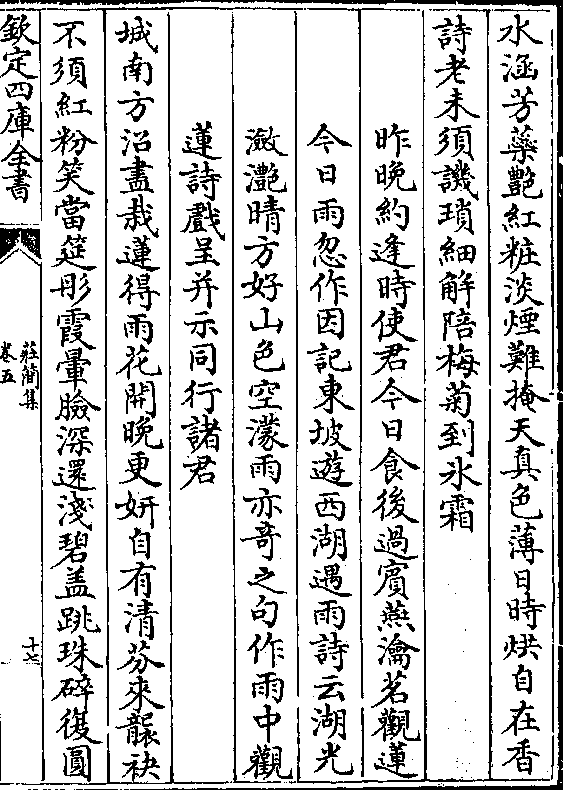 水涵芳蘂艷紅粧淡煙難掩天真色薄日時烘自在香
詩老未須譏瑣細解陪梅菊到氷霜
昨晚約逢時使君今日食後過賓燕瀹茗觀蓮
今日雨忽作因記東坡遊西湖遇雨詩云湖光
瀲灔晴方好山色空濛雨亦奇之句作雨中觀
蓮詩戲呈并示同行諸君
城南方沼盡栽蓮得雨花開晚更妍自有清芬來襲袂
不須紅粉笑當筵彤霞暈臉深還淺碧盖跳珠碎復圓
欽定四庫全書
莊簡集
卷五
十七